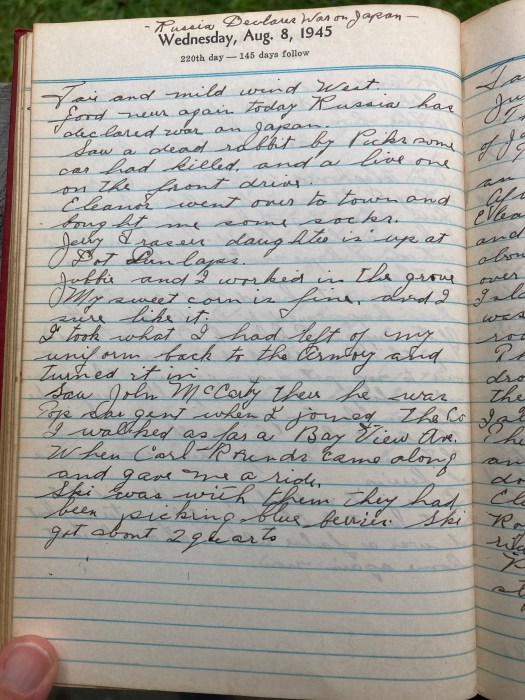 - Russia Declares War on Japan -
Wednesday, Aug. 8, 1945
220th day — 145 days follow
Fair and mild wind West.
Good news again today Russia has
declared war on Japan.
Saw a dead rabbit by Picks some
car had killed, and a live one
on the front drive.
Eleanor went over to town and
bought me some socks.
Jerry Frasers daughter is up at
Dot Dunlaps.
Jubbie and I worked in the grove
My sweet corn is fine, and I
sure like it.
I took what I had left of my
uniform back to the Armory and
turned it in.
Saw John McCarty there he was
Top Sargent when I joined the Co
I walked as far a Bay View Ave.
When Carl Pounds came along
and gave me a ride.
Ski was with them they had
been picking blue berries. Ski
got about 2 quarts